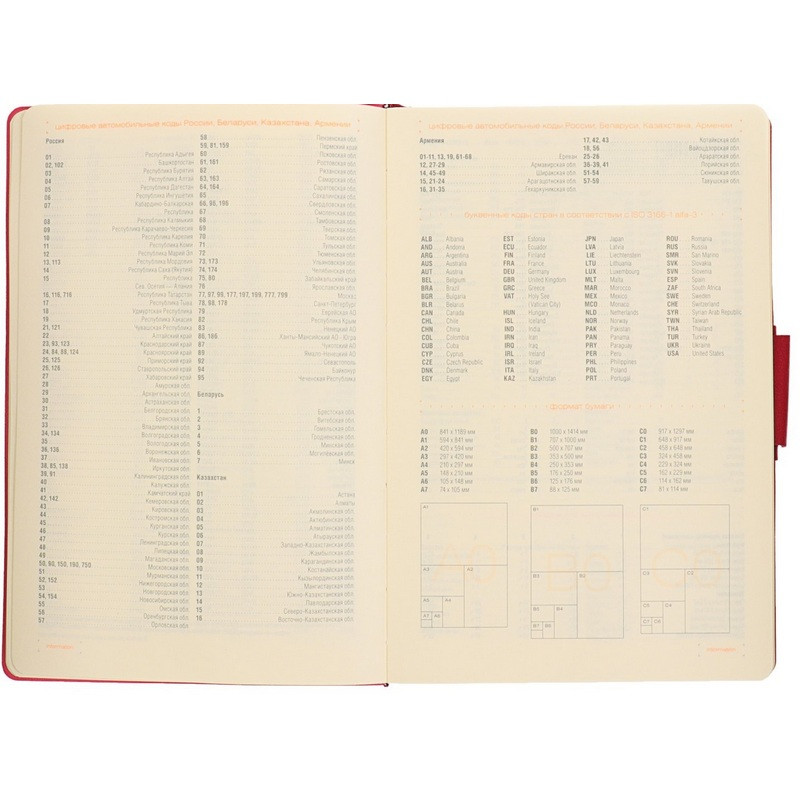 цифровые автомобильные коды России, Беларуси, Казахстана, Армении
Россия
01 Республика Адыгея
02, 102 Башкортостан
03 Республика Бурятия
04 Республика Алтай
05 Республика Дагестан
06 Республика Ингушетия
07 Кабардино-Балкарская
Республика
08 Республика Калмыкия
09 Республика Карачаево-Черкесия
10 Республика Карелия
11 Республика Коми
12 Республика Марий Эл
13, 113 Республика Мордовия
14 Республика Саха (Якутия)
15 Республика
Сев. Осетия - Алания
16, 116, 716 Республика Татарстан
17 Республика Тыва
18 Удмуртская Республика
19 Республика Хакасия
21, 121 Чувашская Республика
22 Алтайский край
23, 93, 123 Краснодарский край
24, 84, 88, 124 Красноярский край
25, 125 Приморский край
26, 126 Ставропольский край
27 Хабаровский край
28 Амурская обл.
29 Архангельская обл.
30 Астраханская обл.
31 Белгородская обл.
32 Брянская обл.
33 Владимирская обл.
34, 134 Волгоградская обл.
35 Вологодская обл.
36, 136 Воронежская обл.
37 Ивановская обл.
38, 85, 138 Иркутская обл.
39, 91 Калининградская обл.
40 Калужская обл.
41 Камчатский край
42, 142 Кемеровская обл.
43 Кировская обл.
44 Костромская обл.
45 Курганская обл.
46 Курская обл.
47 Ленинградская обл.
48 Липецкая обл.
49 Магаданская обл.
50, 90, 150, 190, 750 Московская обл.
51 Мурманская обл.
52, 152 Нижегородская обл.
53 Новгородская обл.
54, 154 Новосибирская обл.
55 Омская обл.
56 Оренбургская обл.
57 Орловская обл.
58 Пензенская обл.
59, 81, 159 Пермский край
60 Псковская обл.
61, 161 Ростовская обл.
62 Рязанская обл.
63, 163 Самарская обл.
64, 164 Саратовская обл.
65 Сахалинская обл.
66, 96, 196 Свердловская обл.
67 Смоленская обл.
68 Тамбовская обл.
69 Тверская обл.
70 Томская обл.
71 Тульская обл.
72 Тюменская обл.
73, 173 Ульяновская обл.
74, 174 Челябинская обл.
75, 80 Забайкальский край
76 Ярославская обл.
77, 97, 99, 177, 197, 199, 777, 799 Москва
78, 98, 178 Санкт-Петербург
79 Еврейская АО
82 Республика Крым
83 Ненецкий АО
86, 186 Ханты-Мансийский АО - Югра
87 Чукотский АО
89 Ямало-Ненецкий АО
92 Севастополь
94 Байконур
95 Чеченская Республика
Беларусь
1 Брестская обл.
2 Витебская обл.
3 Гомельская обл.
4 Гродненская обл.
5 Минская обл.
6 Могилёвская обл.
7 Минск
Казахстан
01 Астана
02 Алматы
03 Акмолинская обл.
04 Актюбинская обл.
05 Алматинская обл.
06 Атырауская обл.
07 Западно-Казахстанская обл.
08 Жамбылская обл.
09 Карагандинская обл.
10 Костанайская обл.
11 Кызылординская обл.
12 Мангистауская обл.
13 Южно-Казахстанская обл.
14 Павлодарская обл.
15 Северо-Казахстанская обл.
16 Восточно-Казахстанская обл.
цифровые автомобильные коды России, Беларуси, Казахстана, Армении
Армения
01-11, 13, 19, 61-68 Ереван
12, 27-29 Армавирская обл.
14, 45-49 Ширакская обл.
15, 21-24 Арагацотнская обл.
16, 31-35 Гехаркуникская обл.
17, 42, 43 Котайкская обл.
18, 56 Вайоцдзорская обл.
25-26 Араратская обл.
36-39, 41 Лорийская обл.
51-54 Сюникская обл.
57-59 Тавушская обл.
буквенные коды стран в соответствии с ISO 3166-1 alfa-3
ALB Albania
AND Andorra
ARG Argentina
AUS Australia
AUT Austria
BEL Belgium
BRA Brazil
BGR Bulgaria
BLR Belarus
CAN Canada
CHL Chile
CHN China
COL Colombia
CUB Cuba
CYP Cyprus
CZE Czech Republic
DNK Denmark
EGY Egypt
EST Estonia
ECU Ecuador
FIN Finland
FRA France
DEU Germany
GBR United Kingdom
GRC Greece
VAT Holy See
(Vatican City)
HUN Hungary
ISL Iceland
IND India
IRN Iran
IRQ Iraq
IRL Ireland
ISR Israel
ITA Italy
KAZ Kazakhstan
JPN Japan
LVA Latvia
LIE Liechtenstein
LTU Lithuania
LUX Luxembourg
MLT Malta
MAR Morocco
MEX Mexico
MCO Monaco
NLD Netherlands
NOR Norway
PAK Pakistan
PAN Panama
PRY Paraguay
PER Peru
PHL Philippines
POL Poland
PRT Portugal
ROU Romania
RUS Russia
SMR San Marino
SVK Slovakia
SVN Slovenia
ESP Spain
ZAF South Africa
SWE Sweden
CHE Switzerland
SYR Syrian Arab Republic
TWN Taiwan
THA Thailand
TUR Turkey
UKR Ukraine
USA United States
формат бумаги
A0 841 x 1189 мм
A1 594 x 841 мм
A2 420 x 594 мм
A3 297 x 420 мм
A4 210 x 297 мм
A5 148 x 210 мм
A6 105 x 148 мм
A7 74 x 105 мм
B0 1000 x 1414 мм
B1 707 x 1000 мм
B2 500 x 707 мм
B3 353 x 500 мм
B4 250 x 353 мм
B5 176 x 250 мм
B6 125 x 176 мм
B7 88 x 125 мм
C0 917 x 1297 мм
C1 648 x 917 мм
C2 458 x 648 мм
C3 324 x 458 мм
C4 229 x 324 мм
C5 162 x 229 мм
C6 114 x 162 мм
C7 81 x 114 мм
A1
A3
A2
A5
A4
A7
A6
B1
B3
B2
B5
B4
B7
B6
C1
C3
C2
C5
C4
C7
C6